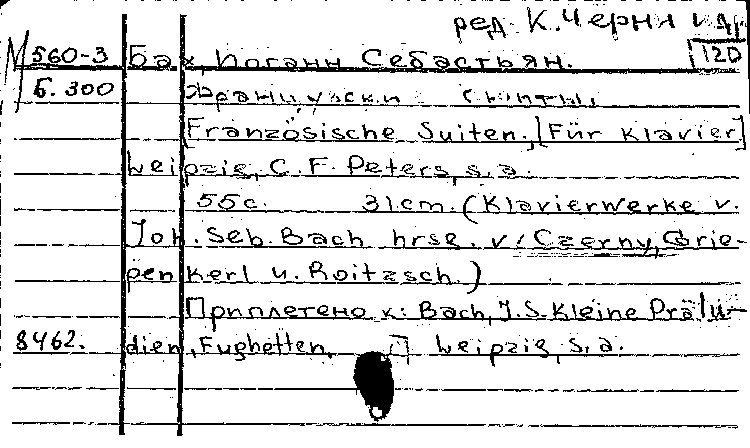 ред. К. Черни и др.
М 560-3 Бах, Иоганн Себастьян. 120
Б. 300 Французски сюиты.
[Französische Suiten.] [Für Klavier]
Leipzig, C. F. Peters, s. a.
55 с. 31 cm. (Klavierwerke v.
Joh. Seb. Bach hrsg. v. Czerny, Grie-
penkerl u. Roitzsch.)
Приплетено к: Bach, J. S. Kleine Prälu-
8462. dien, Fughetten, Leipzig, s. a.